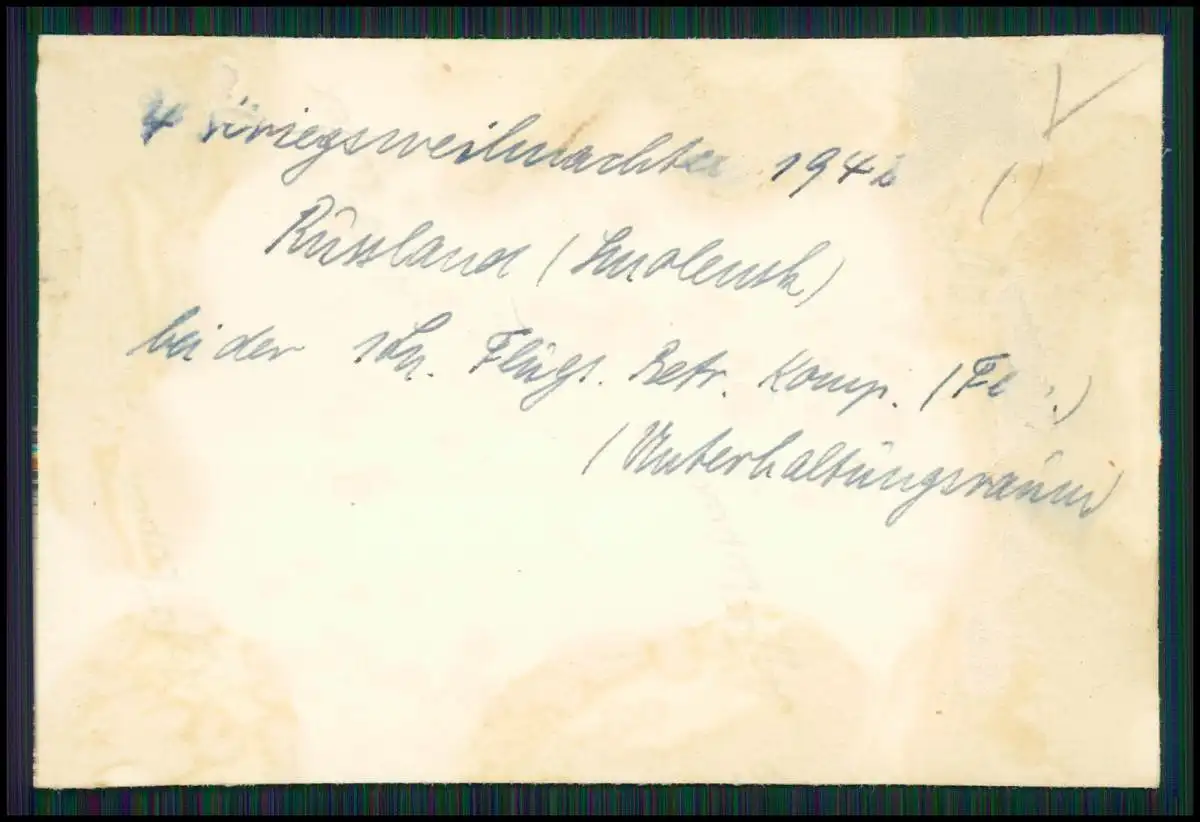 4 Kriegsweihnachten 194
Russland (Smolensk)
bei der Flugs. Betr. Komp. (
(Unterhaltungsraum)